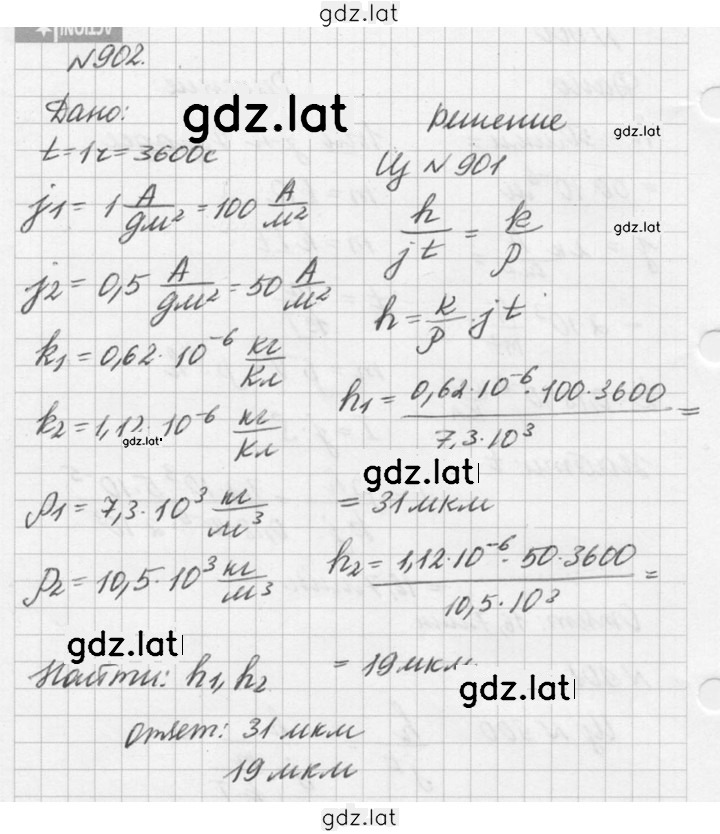 gdz.lat
№902.
Дано:
t=1ч=3600с
j1= 1 А/дм² =100 А/м²
j2= 0,5 А/дм² =50 А/м²
k1=0,62·10⁻⁶ кг/Кл
k2=1,12·10⁻⁶ кг/Кл
ρ1=7,3·10³ кг/м³
ρ2=10,5·10³ кг/м³
Найти: h1, h2
решение
Из №901
h/jt = k/ρ
h= k/ρ · jt
h1= 0,62·10⁻⁶·100·3600/7,3·10³ =
= 31 мкм
h2= 1,12·10⁻⁶·50·3600/10,5·10³ =
= 19 мкм.
ответ: 31 мкм
19 мкм
gdz.lat
gdz.lat
gdz.lat
gdz.lat
gdz.lat
gdz.lat
gdz.lat
gdz.lat